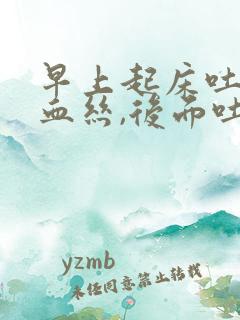 早上起床吐
血丝,后面吐
yzmb
未经同意禁止转载